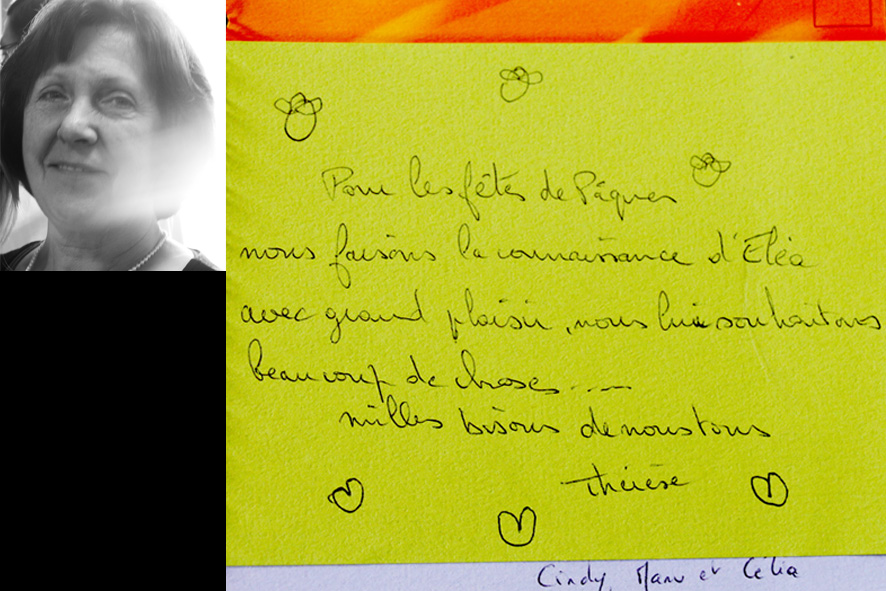 Pour les fêtes de Pâques
nous faisons la connaissance d'Eléa
avec grand plaisir, nous lui souhaitons
beaucoup de choses.....
milles bisous de nous tous
Thérèse
Cindy, Manu et Célia